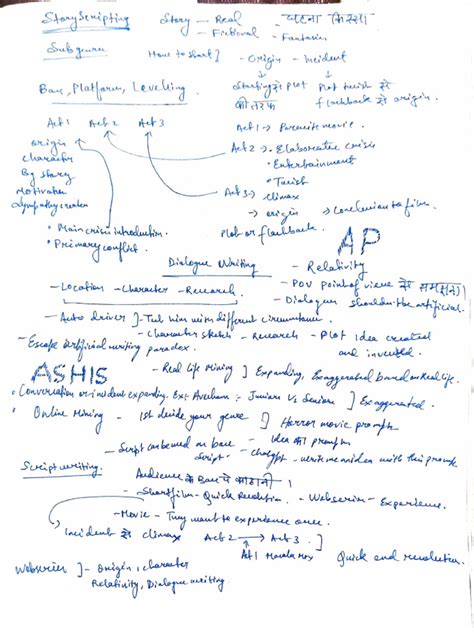 StoryScripting Story — Real — घटना किस्सा
— Fictional — Fantasies
Subgenre How to start] — Origin — Incident
Base, Platform, Levelling Starting से Plot Plot twist से
की तरफ flashback से origin.
Act 1 Act 2 Act 3 Act 1 → Premise movie.
Origin Act 2 → • Elaborative crisis
Character • Entertainment
Bg story • Twist
Motivation Act 3 → • Climax
Sympathy creation → origin → Conclusion to film
• Main crisis introduction. Plot or flashback.
• Primary conflict. AP
Dialogue Writing — Relativity
— POV point of view को समझना।
— Location — Character — Research — Dialogue shouldn't be artificial.
— Auto driver ]— with different circumstance
— Character sketch — Research — Plot Idea created
and invented
— Escape artificial writing paradox.
ASHIS — Real life Mining ] Expanding, Exaggerated based on Real life.
• Conversation or incident expanding. Juniors Vs Seniors ] Exaggerated.
• Online Mining — 1st decide your genre ] Horror movie prompts
— Idea की prompts
— Script on base Script — chatgpt — write me an idea with this prompt
Scriptwriting. Audience के
— Shortfilm — Quick Resolution. — Webseries — Experience.
— Movie — They want to experience once.
Incident से climax Act 2 → Act 3. ]
Act 1 Quick end resolution.
Webseries ]— Origin, character
Relativity, Dialogue writing